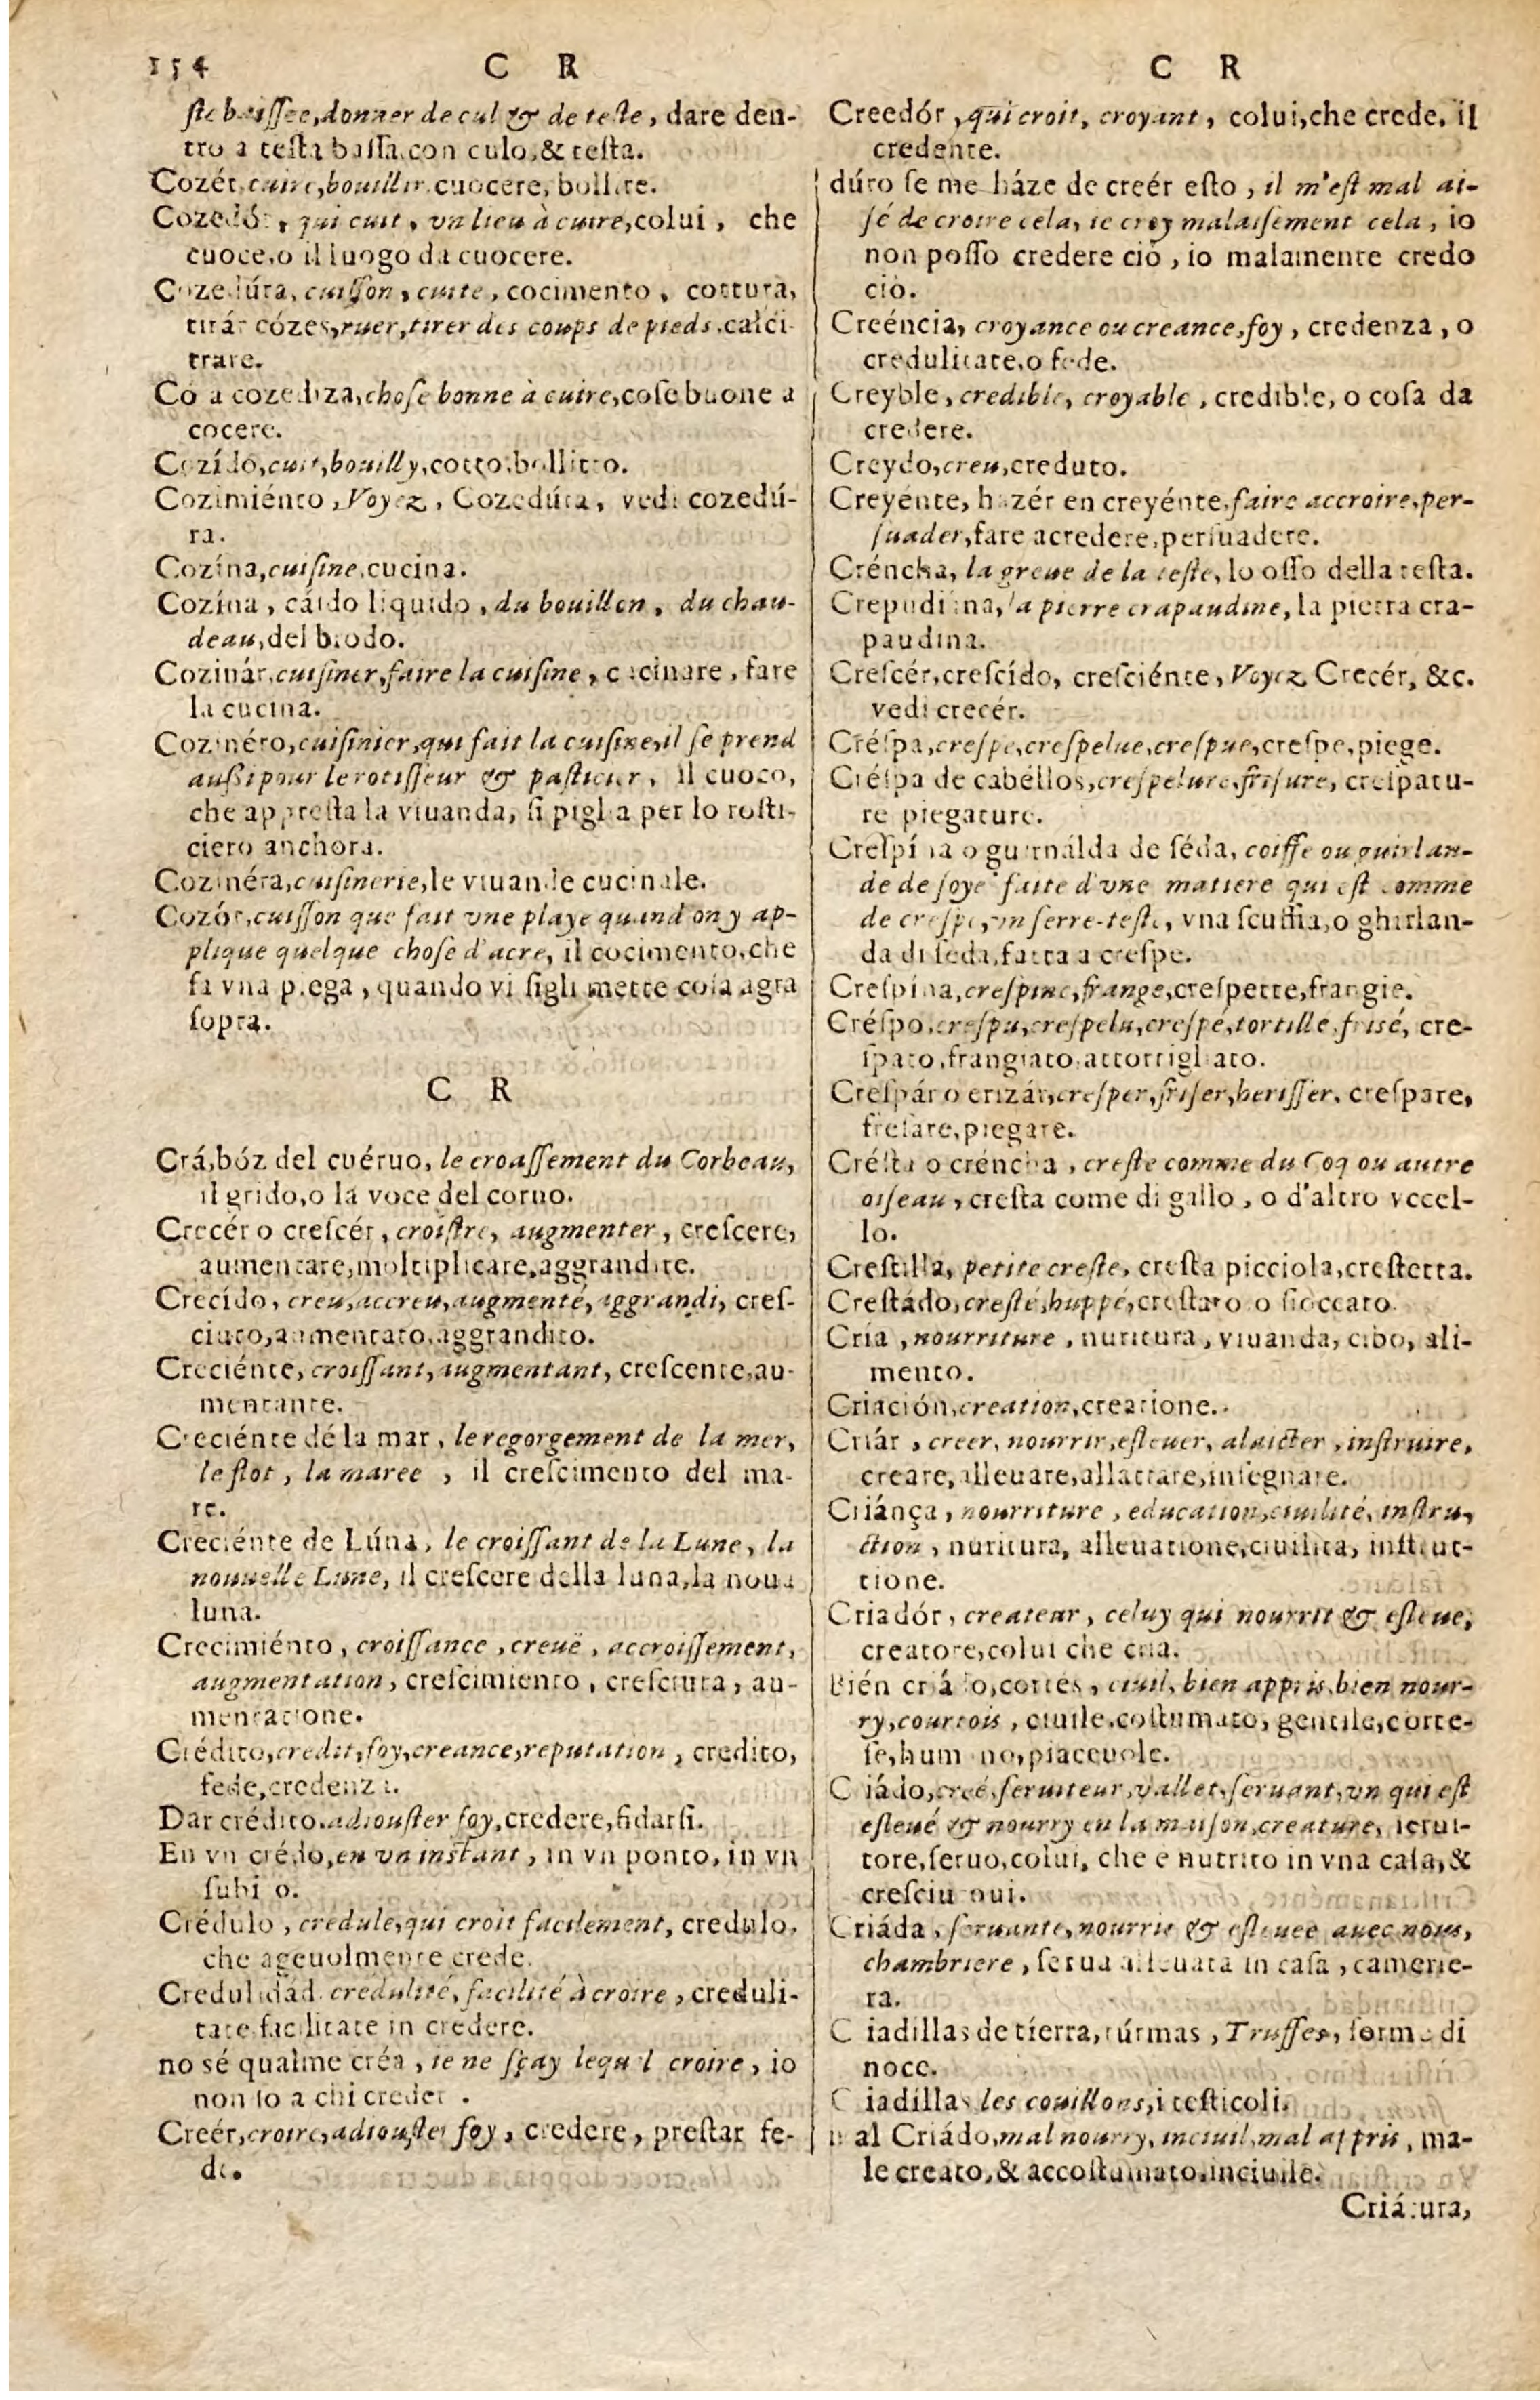 154 C R C R
ste baissee, donner de cul & de teste, dare den-
tro a testa bassa, con culo, & testa.
Cozér, cuire, bouillir, cuocere, bollire.
Cozedór, qui cuit, vn lieu à cuire, colui, che
cuoce, o il luogo da cuocere.
Cozedúra, cuisson, cuite, cocimento, cottura,
tirár cózes, ruer, tirer des coups de pieds, calci-
trare.
Co a cozediza, chose bonne à cuire, cose buone a
cocere.
Cozído, cuit, bouilly, cotto, bollitto.
Cozimiénto, Voyez, Cozedúra, vedi cozedú-
ra.
Cozína, cuisine, cucina.
Cozína, cáldo liquido, du bouillon, du chau-
deau, del brodo.
Cozinár, cuisiner, faire la cuisine, cucinare, fare
la cucina.
Cozinéro, cuisinier, qui fait la cuisine, il se prend
aussi pour le rotisseur & pasticier, il cuoco,
che appresta la viuanda, si piglia per lo rosti-
ciero anchora.
Cozinéra, cuisinerie, le viuande cucinale.
Cozór, cuisson que fait vne playe quand on y ap-
plique quelque chose d'acre, il cocimento, che
fa vna piega, quando vi sigli mette cosa agra
sopra.
C R
Crá, bóz del cuéruo, le croassement du Corbeau,
il grido, o la voce del coruo.
Crecér o crescér, croistre, augmenter, crescere,
aumentare, moltiplicare, aggrandire.
Crecído, creu, accreu, augmenté, aggrandi, cres-
ciuto, aumentato, aggrandito.
Creciénte, croissant, augmentant, crescente, au-
mentante.
Creciénte dé la mar, le regorgement de la mer,
le flot, la maree, il crescimento del ma-
re.
Creciénte de Lúna, le croissant de la Lune, la
nouuelle Lune, il crescere della luna, la noua
luna.
Crecimiénto, croissance, creuë, accroissement,
augmentation, crescimiento, cresctura, au-
mentatione.
Crédito, credit, foy, creance, reputation, credito,
fede, credenza.
Dar crédito, adiouster foy, credere, fidarsi.
En vn crédo, en vn instant, in vn ponto, in vn
subi o.
Crédulo, credule, qui croit facilement, credulo,
che ageuolmente crede.
Credulidád, credulité, facilité à croire, creduli-
tate, facilitate in credere.
no sé qualme créa, ie ne sçay lequel croire, io
non so a chi creder .
Creér, croire, adiouster foy, credere, prestar fe-
de.
Creedór, qui croit, croyant, colui, che crede, il
credente.
dúro se me háze de creér esto, il m'est mal ai-
sé de croire cela, ie croy malaisement cela, io
non posso credere ciò, io malamente credo
ciò.
Creéncia, croyance ou creance, foy, credenza, o
credulitate, o fede.
Creyble, credible, croyable, credible, o cosa da
credere.
Creydo, creu, creduto.
Creyénte, hazér en creyénte, faire accroire, per-
suader, fare acredere, persuadere.
Créncha, la greue de la teste, lo osso della testa.
Crepudina, la pierre crapaudine, la pietra cra-
paudina.
Crescér, crescído, cresciénte, Voyez Crecér, &c.
vedi crecér.
Créspa, crespe, crespelue, crespue, crespe, piege.
Créspa de cabéllos, crespelure, frisure, crespatu-
re piegature.
Crespína o guirnálda de séda, coiffe ou guirlan-
de de soye faite d'vne matiere qui est comme
de crespe, vn serre-teste, vna scuffia, o ghirlan-
da di seda, fatta a crespe.
Crespína, crespine, frange, crespette, frangie.
Créspo, crespu, crespelu, crespé, tortille, frisé, cre-
spato, frangiato, attortigliato.
Crespár o erizár, cresper, friser, herisser, crespare,
fresare, piegare.
Crésta o créncha, creste comme du Coq ou autre
oiseau, cresta come di gallo, o d'altro vccel-
lo.
Crestilla, petite creste, cresta picciola, crestetta.
Crestádo, cresté, huppé, crestato o fioccato.
Cría, nourriture, nuritura, viuanda, cibo, ali-
mento.
Criación, creation, creatione.
Criár, creer, nourrir, esleuer, alaicter, instruire,
creare, alleuare, allattare, insegnare.
Criánça, nourriture, education, ciuilité, instru-
ction, nuritura, alleuatione, ciuilita, institut-
tione.
Criadór, createur, celuy qui nourrit & esleue,
creatore, colui che cria.
Bién criá o, cortés, ciuil, bien appris, bien nour-
ry, courtois, ciuile, costumato, gentile, corte-
se, hum no, piaceuole.
C iádo, creé, seruiteur, vallet, seruant, vn qui est
esleué & nourry en la maison, creature, serui-
tore, seruo, colui, che e nutrito in vna casa, &
cresciu oui.
Criáda, seruante, nourrie & esleuee auec nous,
chambriere, serua alleuata in casa, camerie-
ra.
C iadillas de tierra, túrmas, Truffes, forme di
noce.
C iadíllas les couillons, i testicoli.
al Criádo, mal nourry, inciuil, mal appris, ma-
le creato, & accostumato, inciuile.
Criá ura,